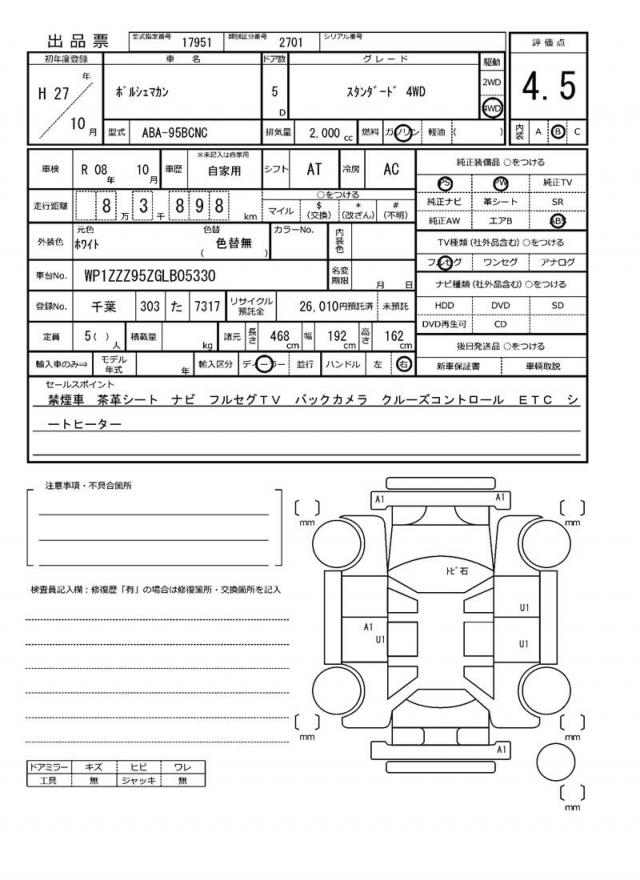 出品票 型式指定番号 17951 類別区分番号 2701 シリアル番号
初年度登録 車名 ドア数 グレード 駆動 評価点
H 27 年 10 月 ポルシェマカン 5 D スタンダード 4WD 2WD 4WD 4.5
型式 ABA-95BCNC 排気量 2,000 cc 燃料 ガソリン 軽油 ( ) 内装 A B C
車検 R 08 年 10 月 車歴 ※未記入は自家用 自家用 シフト AT 冷房 AC 純正装備品 ○をつける
PS PW 純正TV
走行距離 8 万 3 千 8 9 8 km ○をつける
マイル $ (交換) * (改ざん) # (不明) 純正ナビ 革シート SR
純正AW エアB ABS
外装色 元色 ホワイト 色替 ( 色替無 ) カラーNo. 内装色 TV種類 (社外品含む) ○をつける
フルセグ ワンセグ アナログ
車台No. WP1ZZZ95ZGLB05330 名変期限 月 日 ナビ種類 (社外品含む) ○をつける
登録No. 千葉 303 た 7317 リサイクル預託金 26,010円預託済 未預託 HDD DVD SD
DVD再生可 CD
定員 5( ) 人 積載量 kg 諸元 長さ 468 cm 幅 192 cm 高さ 162 cm 後日発送品 ○をつける
輸入車のみ⇒ モデル年式 年 輸入区分 ディーラー 並行 ハンドル 左 右 新車保証書 車輌取説
セールスポイント
禁煙車 茶革シート ナビ フルセグTV バックカメラ クルーズコントロール ETC シ
ートヒーター
注意事項・不具合箇所
A1 A1
mm mm
トビ石
検査員記入欄：修復歴「有」の場合は修復箇所・交換箇所を記入
U1
A1
U1 U1
mm mm
A1
ドアミラー キズ ヒビ ワレ
工具 無 ジャッキ 無
mm